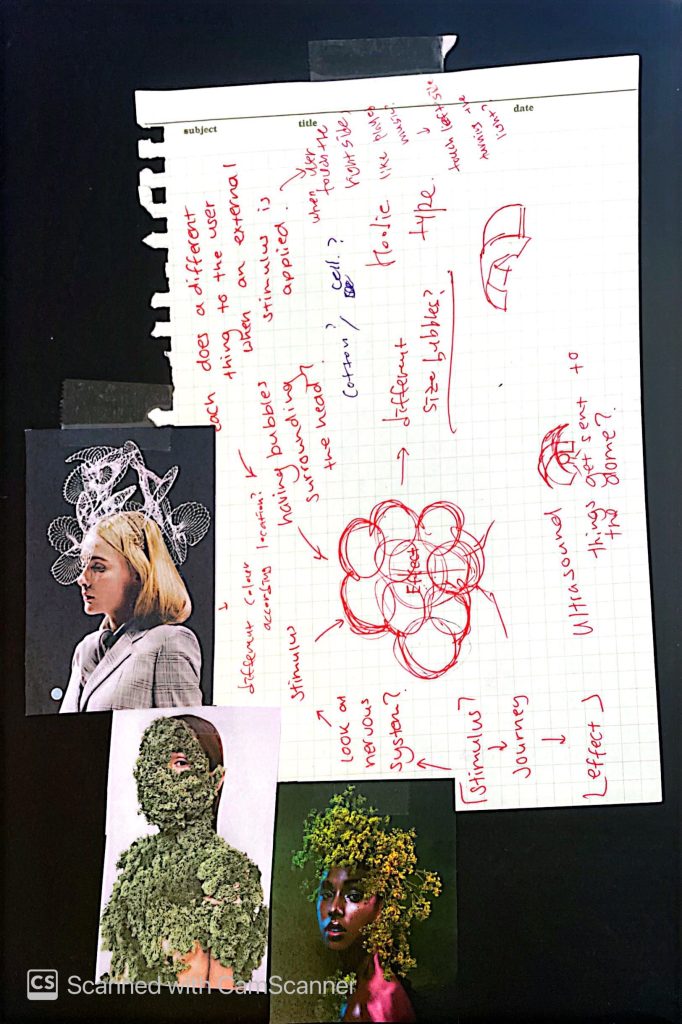 subject
title
date
each does a different
thing to the user
when an external
stimulus is
applied.
when user
touch the
right side,
Hoodie like plays
music.
touch left side
turns the
light?
type.
cotton? / cell?
having bubbles
surrounding
the head?
different colour
according location?
different
size bubbles?
Effect
stimulus
Look on
nervous
system?
[Stimulus]
Journey
[effect]
Ultrasound
things get sent to
the dome?
CS Scanned with CamScanner